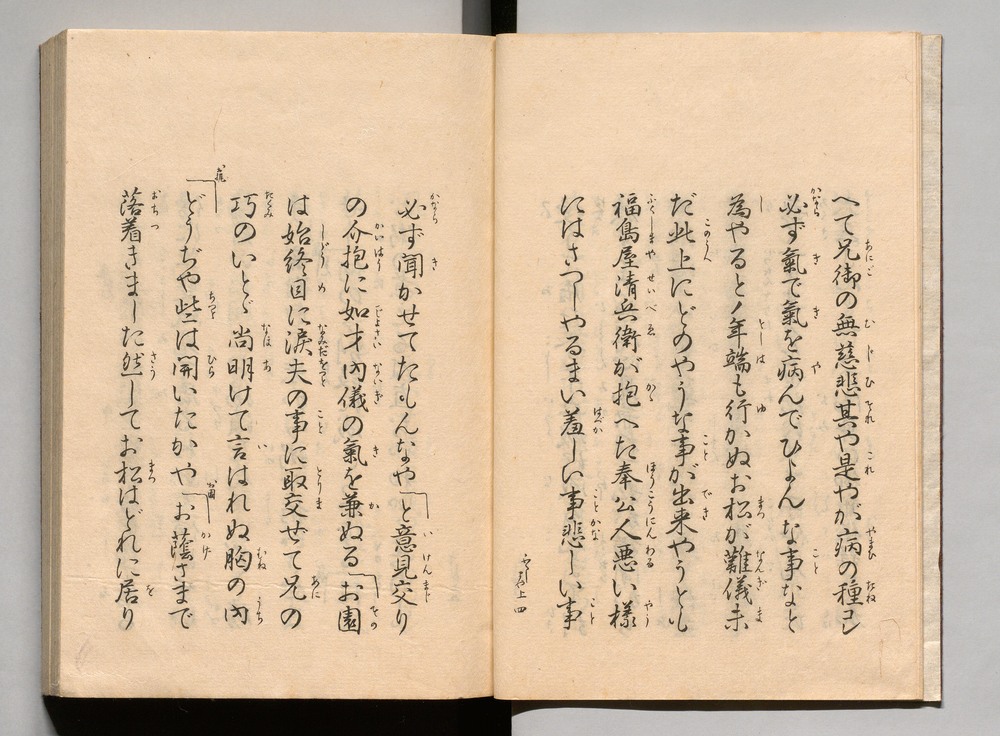 へて兄御の無慈悲其や是やが病の種コレ
必ず氣で氣を病んでひよんな事なと
為やると年端も行かぬお松が難儀未
だ此上にどのやうな事が出来やうとも
福島屋清兵衛が抱へた奉公人悪い様
にはさつしやるまい羞しい事悲しい事
必ず聞かせてたもんなやと意見交り
の介抱に如才内儀の氣を兼ぬるお園
は始終目に涙夫の事に取交せて兄の
巧のいとゞ尚明けて言はれぬ胸の内
どうぢや些は開いたかやお蔭さまで
落着きました然してお松はどれに居り